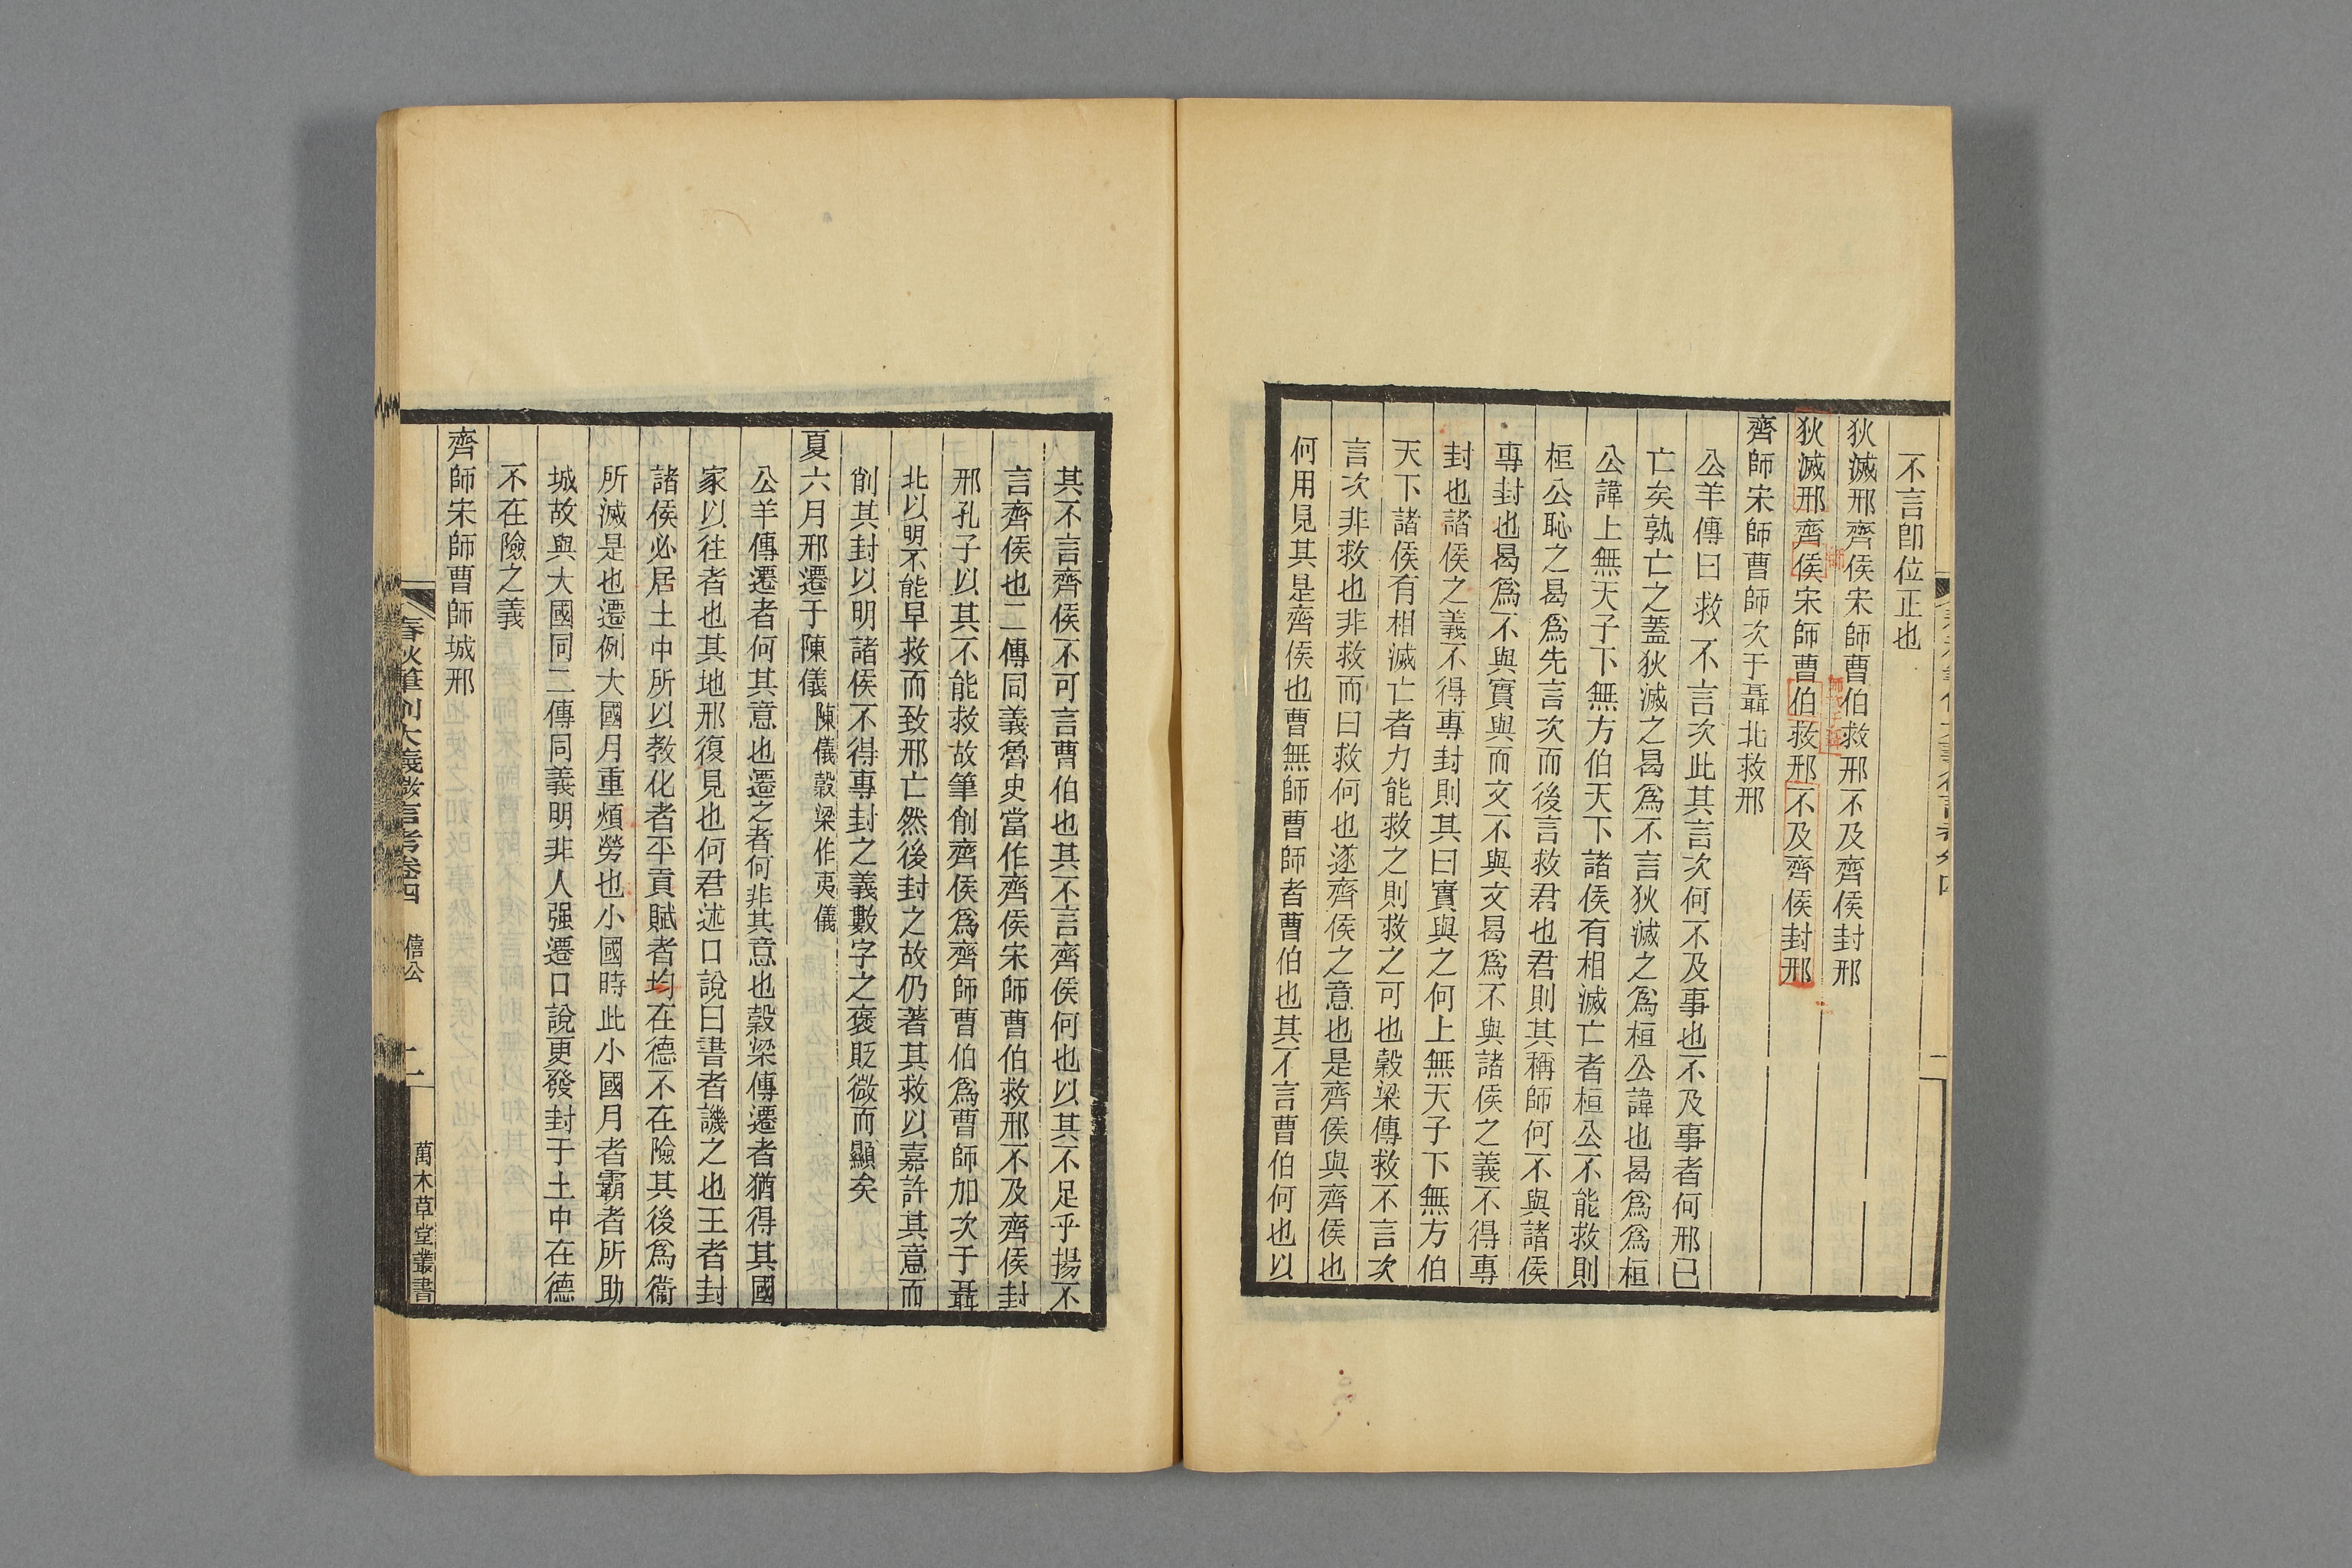 不言卽位正也
狄滅邢齊侯宋師曹伯救邢不及齊侯封邢
狄滅邢齊侯宋師曹伯救邢不及齊侯封邢
師
齊師宋師曹師次于聶北救邢
公羊傳曰救不言次此其言次何不及事也不及事者何邢已
亡矣孰亡之蓋狄滅之曷爲不言狄滅之爲桓公諱也曷爲爲桓
公諱上無天子下無方伯天下諸侯有相滅亡者桓公不能救則
桓公恥之曷爲先言次而後言救君也君則其稱師何不與諸侯
專封也曷爲不與實與而文不與文曷爲不與諸侯之義不得專
封也諸侯之義不得專封則其曰實與之何上無天子下無方伯
天下諸侯有相滅亡者力能救之則救之可也穀梁傳救不言次
言次非救也非救而曰救何也遂齊侯之意也是齊侯與齊侯也
何用見其是齊侯也曹無師曹師者曹伯也其不言曹伯何也以
其不言齊侯不可言曹伯也其不言齊侯何也以其不足乎揚不
言齊侯也二傳同義魯史當作齊侯宋師曹伯救邢不及齊侯封
邢孔子以其不能救故筆削齊侯爲齊師曹伯爲曹師加次于聶
北以明不能早救而致邢亡然後封之故仍著其救以嘉許其意而
削其封以明諸侯不得專封之義數字之褒貶微而顯矣
夏六月邢遷于陳儀陳儀穀梁作夷儀
公羊傳遷者何其意也遷之者何非其意也穀梁傳遷者猶得其國
家以往者也其地邢復見也何君述口說曰書者譏之也王者封
諸侯必居土中所以教化者平貢賦者均在德不在險其後爲衞
所滅是也遷例大國月重煩勞也小國時此小國月者霸者所助
城故與大國同二傳同義明非人强遷口說更發封于土中在德
不在險之義
齊師宋師曹師城邢
春秋筆削大義微言考卷四
僖公
二
萬木草堂叢書